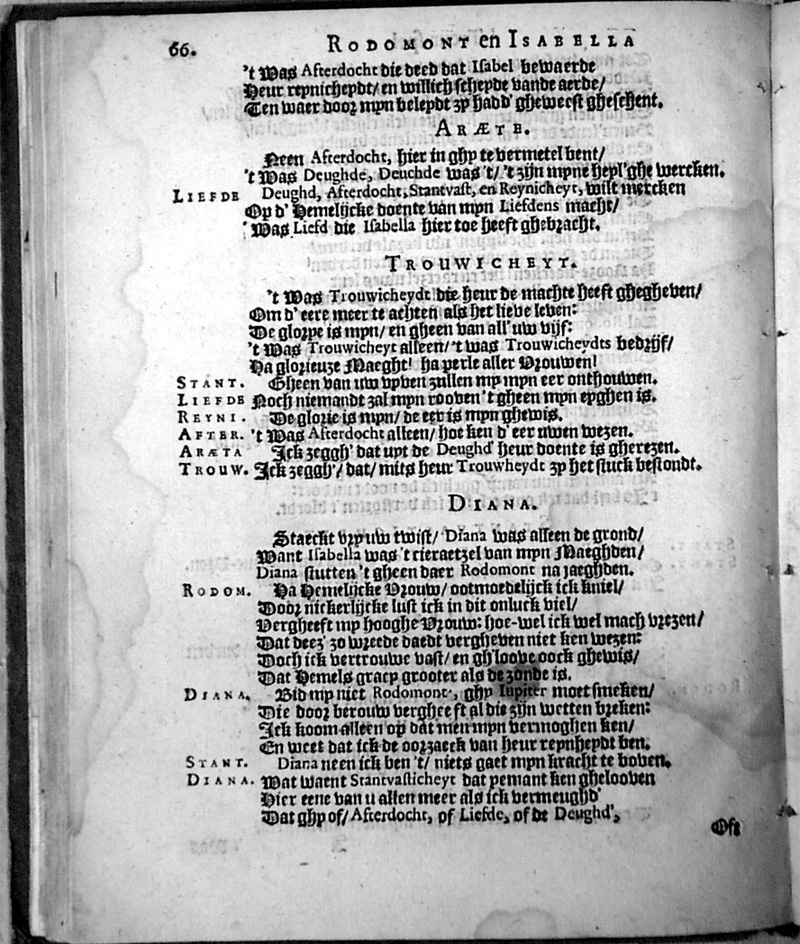 66. RODOMONT en ISABELLA
't Was Afterdocht die deed dat Isabel bewaerde
Heur reynicheydt/ en willich scheyde vande aerde/
Ten waer door myn beleydt zy hadd' gheweest gheschent.
ARÆTE.
Neen Afterdocht, hier in ghy te vermetel bent/
't Was Deughde, Deuchde was 't/ 't zijn myne heyl'ghe wercken.
LIEFDE Deughd, Afterdocht, Stantvast, en Reynicheyt, wilt mercken
Op d' Hemelijcke doente van myn Liefdens macht/
'Was Liefd die Isabella hier toe heeft ghebracht.
TROUWICHEYT.
't Was Trouwicheydt die heur de machte heeft ghegheven/
Om d' eere meer te achten als het lieve leven:
De glorye is myn/ en gheen van all' uw vijf:
't Was Trouwicheyt alleen/ 't was Trouwicheydts bedrijf/
Ha glorieuze Maeght! ha perle aller Vrouwen!
STANT. Gheen van uw vyven zullen my myn eer onthouwen.
LIEFDE Noch niemandt zal myn rooven 't gheen myn eyghen is.
REYNI. De glorie is myn/ de eer is myn ghewis.
AFTER. 't Was Afterdocht alleen/ hoe ken d' eer uwen wezen.
ARÆTA Ick zeggh' dat uyt de Deughd' heur doente is gherezen.
TROUW. Ick zeggh'/ dat/ mits heur Trouwheydt zy het stuck bestondt.
DIANA.
Staeckt vry uw twist/ Diana was alleen de grond/
Want Isabella was 't cieraetzel van myn Maeghden/
Diana stutten 't gheen daer Rodomont na jaeghden.
RODOM. Ha Hemelijcke Vrouw/ ootmoedelijck ick kniel/
Door nickerlijcke lust ick in dit onluck viel/
Vergheeft my hooghe Vrouw: hoe-wel ick wel mach vrezen/
Dat deez' zo wreede daedt vergheven niet ken wezen:
Doch ick vertrouwe vast/ en gh'loove oock ghewis/
Dat Hemels gracy grooter als de zonde is.
DIANA. Bid my niet Rodomont, ghy Iupiter moet smeken/
Die door berouw vergheeft al die zijn wetten breken:
Ick koom alleen op dat men myn vermoghen ken/
En weet dat ick de oorzaeck van heur reynheydt ben.
STANT. Diana neen ick ben 't/ niets gaet myn kracht te boven.
DIANA. Wat waent Stantvasticheyt dat yemant ken ghelooven
Hier eene van u allen meer als ick vermeughd'
Dat ghy of/ Afterdocht, of Liefde, of de Deughd',
Oft